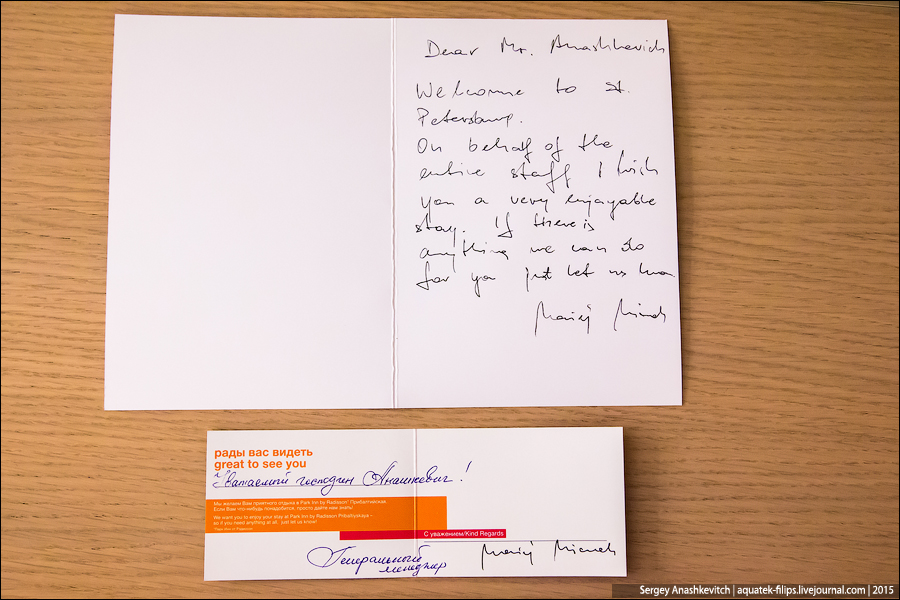 Dear Mr. Anashkevich
Welcome to St.
Petersburg.
On behalf of the
entire staff I wish
you a very enjoyable
stay. If there is
anything we can do
for you just let us know
рады вас видеть
great to see you
Уважаемый господин Анашкевич!
Мы желаем Вам приятного отдыха в Park Inn by Radisson* Прибалтийская.
Если Вам что-нибудь понадобится, просто дайте нам знать!
We want you to enjoy your stay at Park Inn by Radisson Pribaltiyskaya –
so if you need anything at all, just let us know!
С уважением/Kind Regards
Генеральный
менеджер
Sergey Anashkevitch | aquatek-filips.livejournal.com | 2015